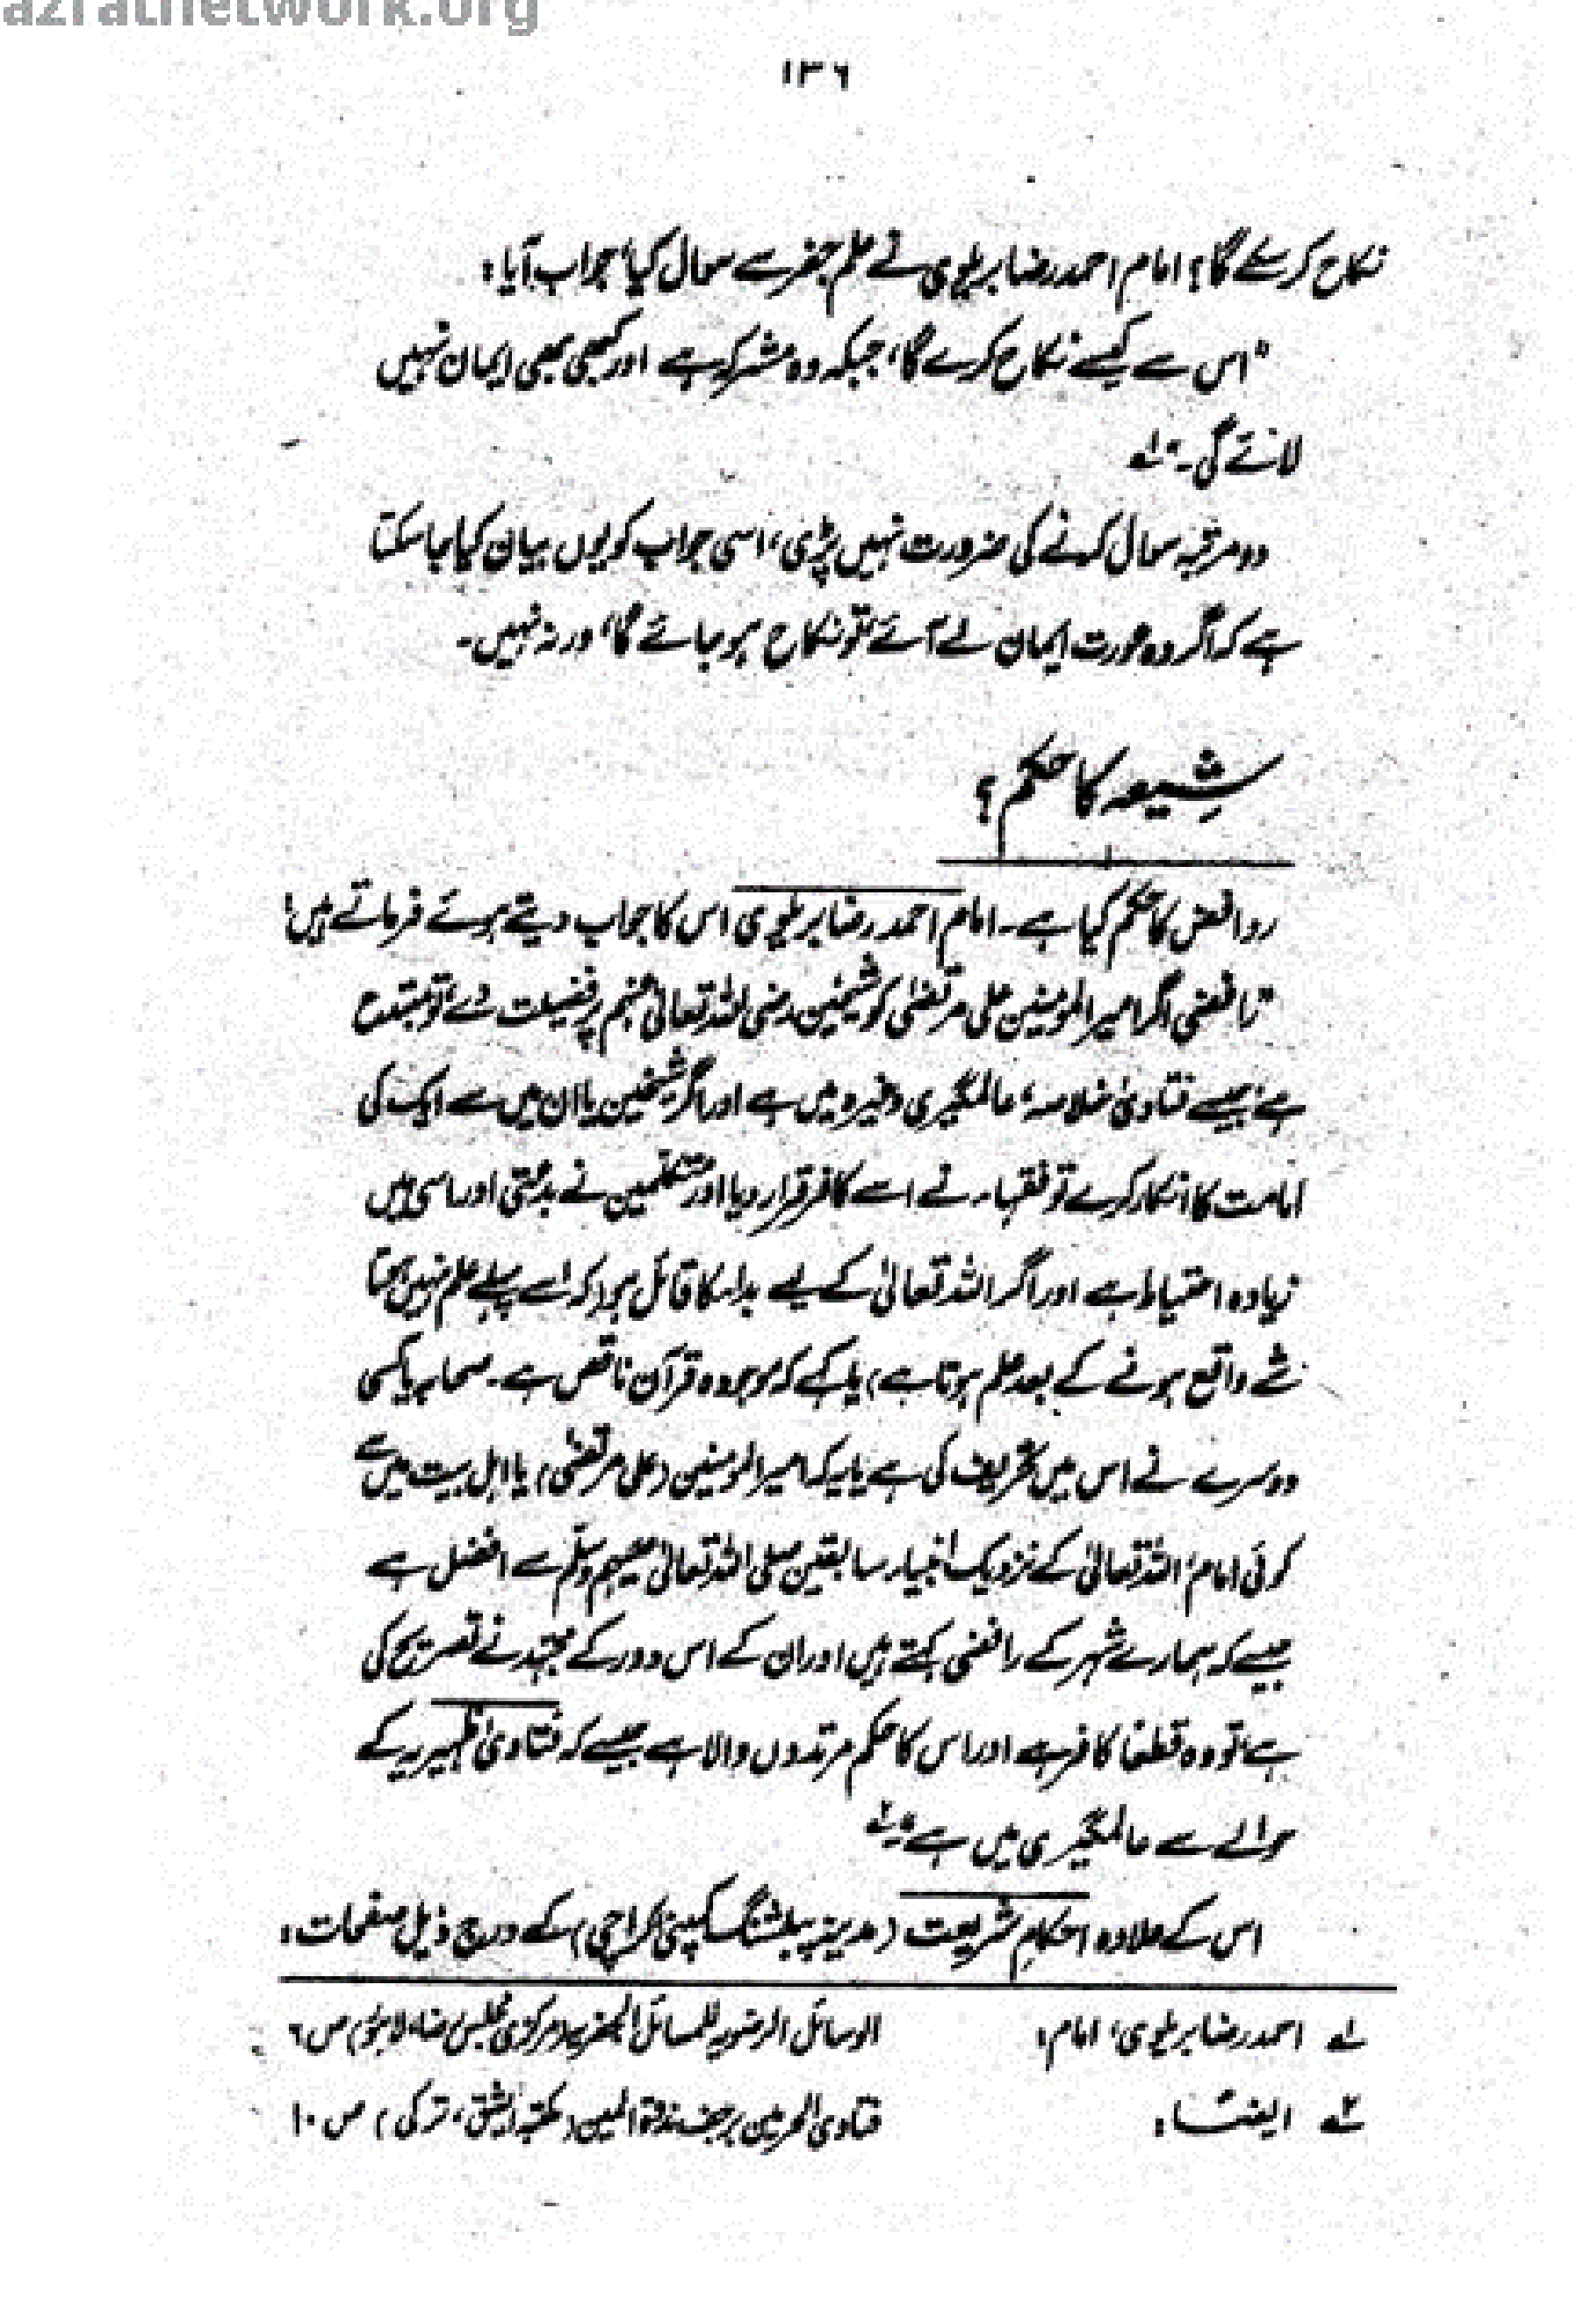 azratnetwork.org
١٣٦
نکاح کر سکے گا؟ امام احمد رضا بریلوی نے علم جفر سے سوال کیا، جواب آیا:
"اس سے کیسے نکاح کرے گا، جبکہ وہ مشرکہ ہے اور کبھی بھی ایمان نہیں
لائے گی۔" لے
دو مرتبہ سوال کرنے کی ضرورت نہیں پڑی، اسی جواب کو یوں بیان کیا جا سکتا
ہے کہ اگر وہ عورت ایمان لے آئے تو نکاح ہو جائے گا، ورنہ نہیں۔
شیعہ کا حکم؟
روافض کا حکم کیا ہے۔ امام احمد رضا بریلوی اس کا جواب دیتے ہوئے فرماتے ہیں:
"رافضی اگر امیر المومنین علی مرتضیٰ کو شیخین رضی اللہ تعالیٰ عنہم پر فضیلت دے تو مبتدع
ہے جیسے فتاویٰ خلاصہ، عالمگیری وغیرہ میں ہے اور اگر شیخین یا ان میں سے ایک کی
امامت کا انکار کرے تو فقہاء نے اسے کافر قرار دیا اور متکلمین نے بدعتی اور اسی میں
زیادہ احتیاط ہے اور اگر اللہ تعالیٰ کے لیے بداء کا قائل ہو (کہ اسے پہلے علم نہیں ہوتا
شے واقع ہونے کے بعد علم ہوتا ہے) یا کہے کہ موجودہ قرآن ناقص ہے۔ صحابہ یا کسی
دوسرے نے اس میں تحریف کی ہے یا یہ کہ امیر المومنین (علی مرتضیٰ) یا اہل بیت میں سے
کوئی امام، اللہ تعالیٰ کے نزدیک انبیاء سابقین صلی اللہ تعالیٰ علیہم وسلم سے افضل ہے
جیسے کہ ہمارے شہر کے رافضی کہتے ہیں اور ان کے اس دور کے مجتہد نے تصریح کی
ہے، تو وہ قطعاً کافر ہے اور اس کا حکم مرتدوں والا ہے جیسے کہ فتاویٰ ظہیریہ کے
حوالے سے عالمگیری میں ہے" ۲ے
اس کے علاوہ احکام شریعت (مدینہ پبلشنگ کمپنی کراچی) کے درج ذیل صفحات:
لے احمد رضا بریلوی، امام: الوسائل الرضویہ للمسائل الجفریہ (مرکزی مجلس رضا، لاہور) ص ٦
۲ے ایضاً: فتاویٰ الحرمین برجف ندوة المین (مکتبہ ایشیق، ترکی) ص ١٠